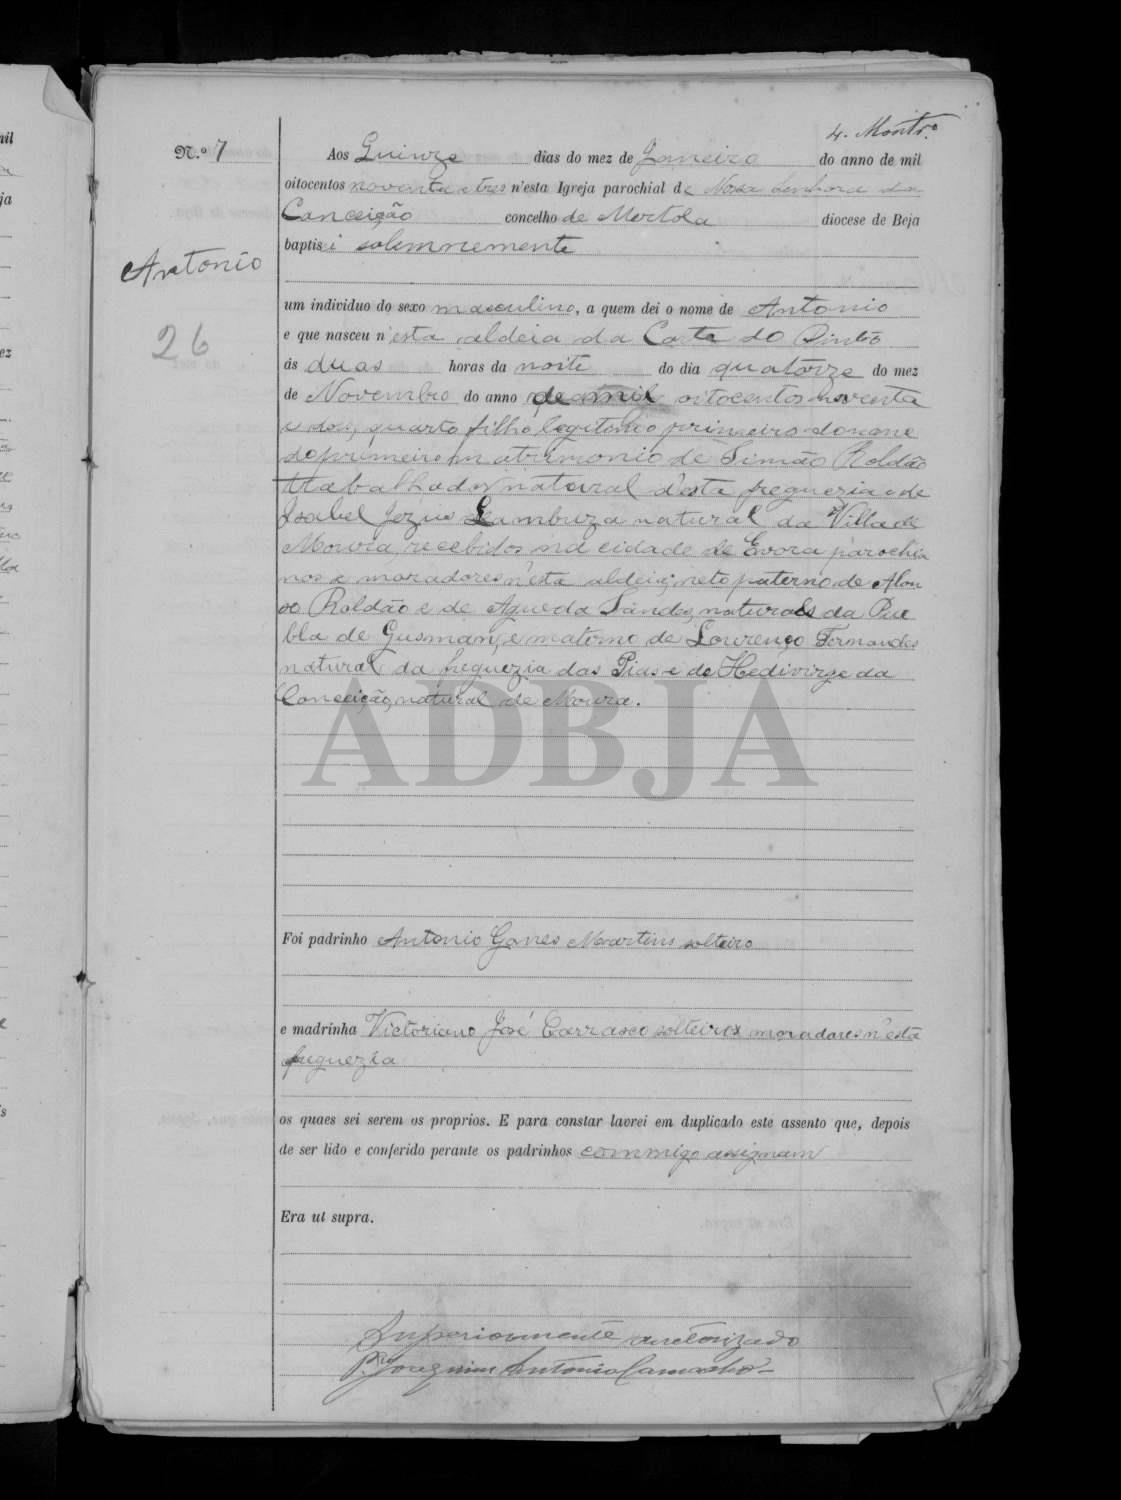 4. Montr.º
N.º 7
Aos Quinze dias do mez de Janeiro do anno de mil
oitocentos noventa e tres n'esta Igreja parochial de Nossa Senhora da
Conceição concelho de Mertola diocese de Beja
baptisei solemnemente
Antonio
26
um individuo do sexo masculino, a quem dei o nome de Antonio
e que nasceu n'esta aldeia da Corte do Pinto
ás duas horas da noite do dia quatorze do mez
de Novembro do anno de mil oitocentos noventa
e dois, quarto filho legitimo primeiro do nome
do primeiro matrimonio de Simão Roldão
trabalhador natural d'esta freguezia e de
Isabel Jezus Lambuza natural da Villa de
Moura, recebidos na cidade de Evora parochia
nos e moradores n'esta aldeia; neto paterno de Alon
so Roldão e de Agueda Sandes, naturaes da Pue
bla de Gusman, e materno de Lourenço Fernandes
natural da freguezia das Pias e de Hedivirge da
Conceição, natural de Moura.
ADBJA
Foi padrinho Antonio Gomes Martins solteiro
e madrinha Victoriano José Carrasco solteiros moradores n'esta
freguezia
os quaes sei serem os proprios. E para constar lavrei em duplicado este assento que, depois
de ser lido e conferido perante os padrinhos commigo assignam
Era ut supra.
Superiormente auctorizado
P.e Joaquim Antonio Camacho